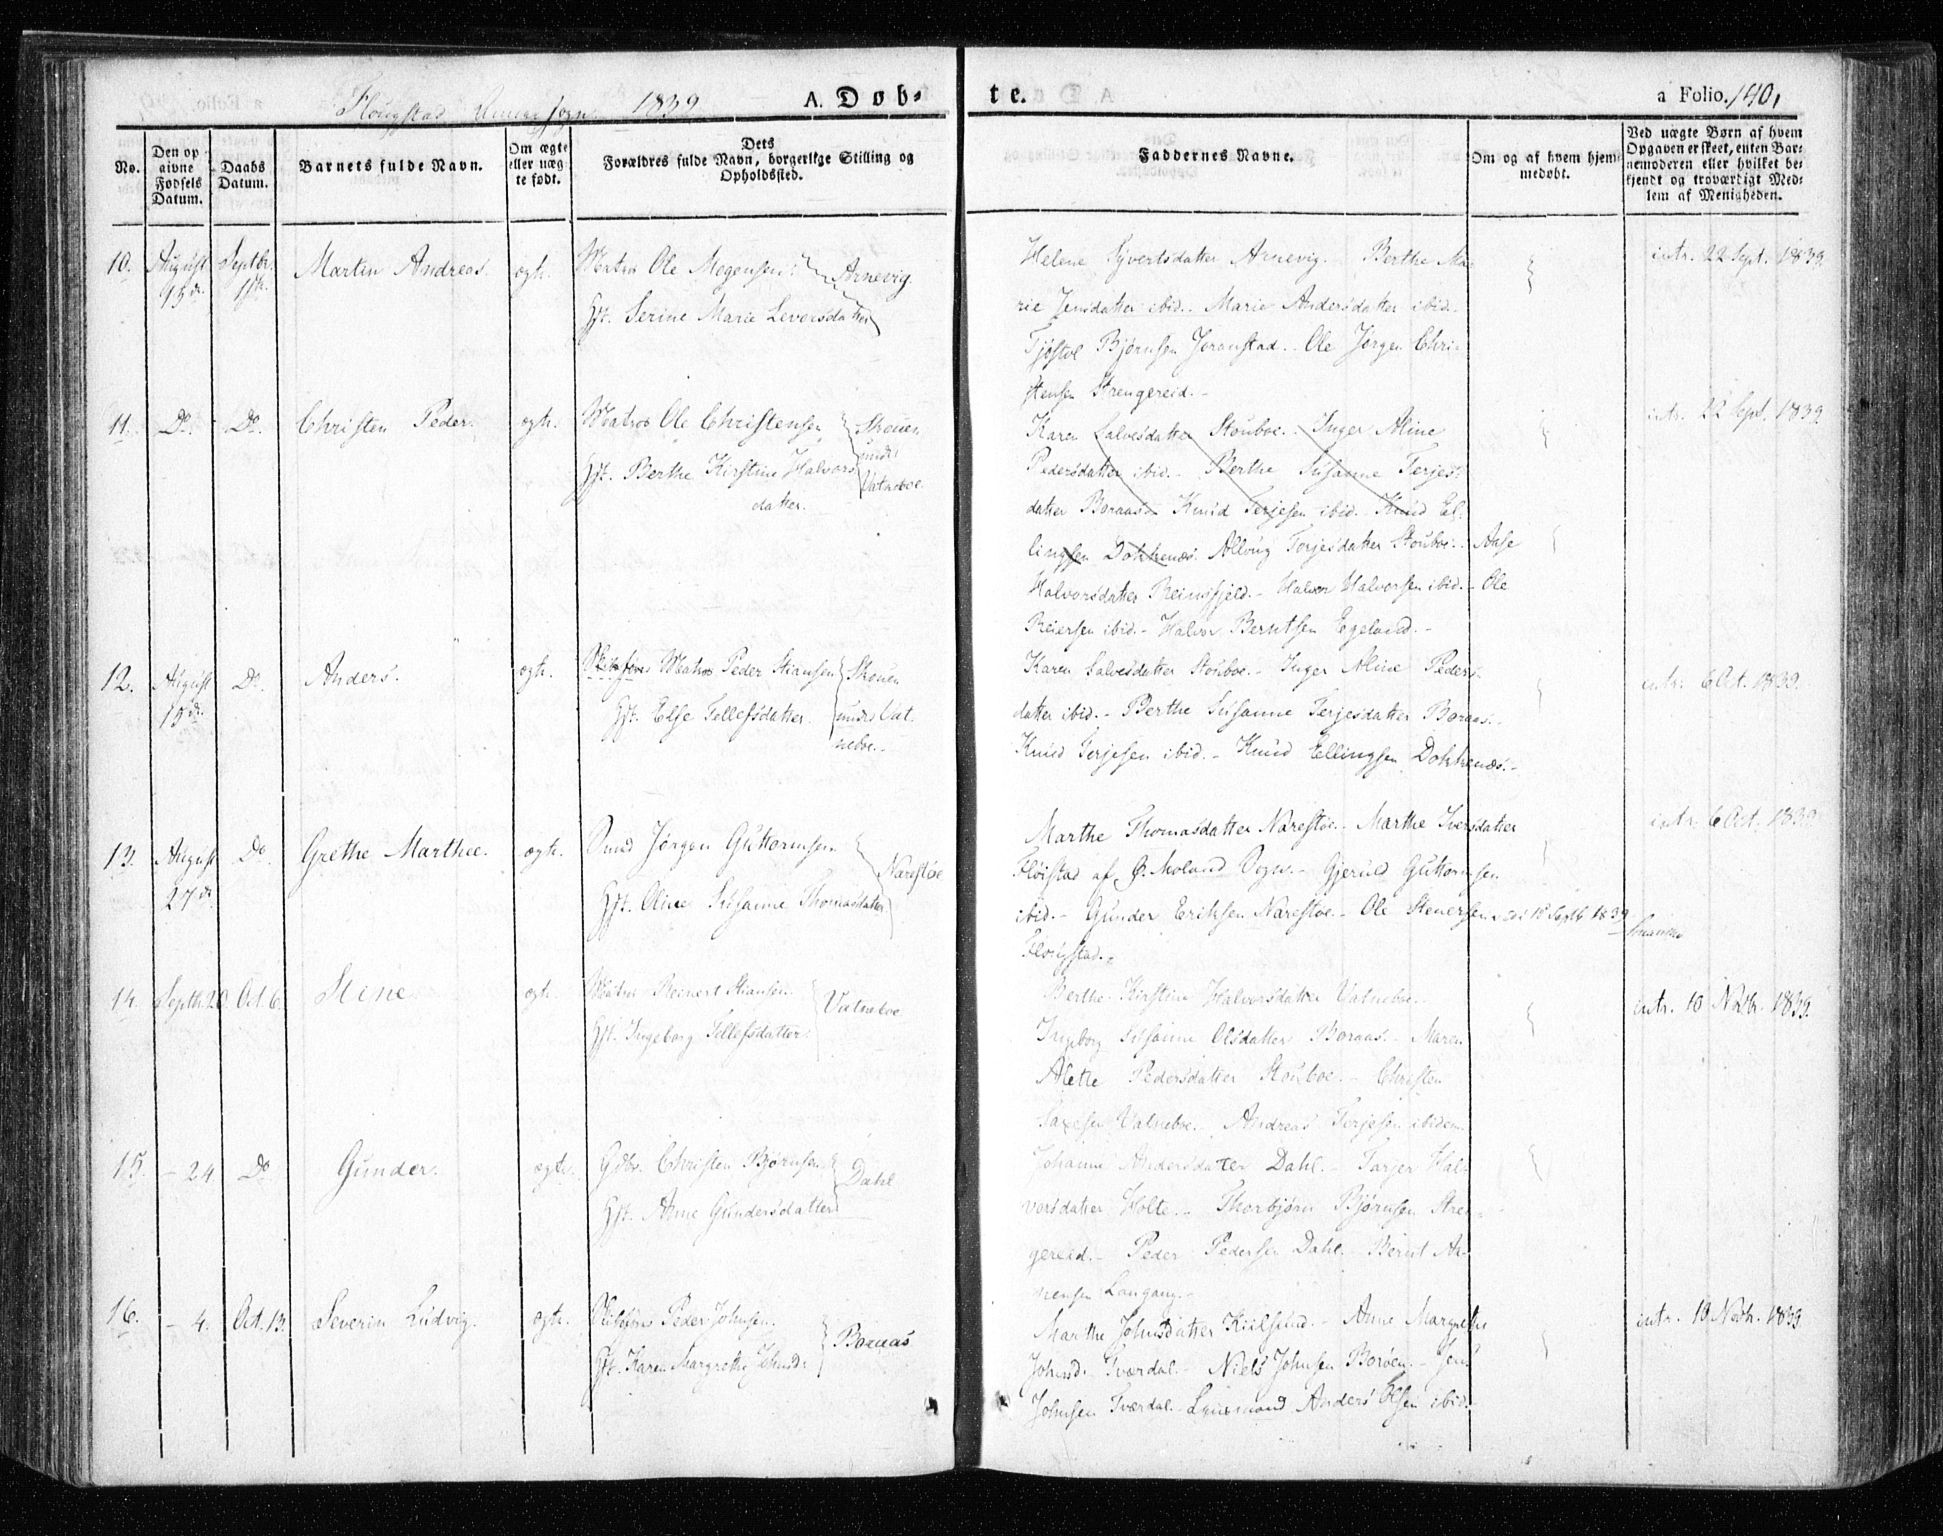 Flougstad Annexsogn 1839. A. Døb-
te. a Folio. 140,
No.
Den op
givne
Fødsels
Datum.
Daabs
Datum.
Barnets fulde Navn.
Om ægte
eller uæg
te født.
Dets
Forældres fulde Navn, borgerlige Stilling og
Opholdssted.
Faddernes Navne.
Om og af hvem hjem-
medøbt.
Ved uægte Børn af hvem
Opgaven er skeet, enten Bar-
nemoderen eller hvilket be-
kjendt og troværdigt Med-
lem af Menigheden.
10. August Septbr. Martin Andreas. ægte. Matros Ole Mogensen Arnevig.
Hst. Serine Marie Leversdatter
Helene Syvertsdatter Arnevig. Berthe Ma-
rie Jensdatter ibid. Marie Andersdatter ibid.
Tjøstol Bjørnsen Joranstad. Ole Jørgen Chri-
stensen Strengereid.
intr. 22 Sept. 1839.
11. Do. Do. Christen Peder. ægte. Matros Ole Christensen Skouen
under
Hst. Berthe Kirstine Halvors Vatneboe
datter.
Karen Salvesdatter Stouboe. Inger Aline
Pedersdatter ibid. Berthe Susanne Terjes-
datter Boraas. Knud Terjesen ibid. Knud El-
lingsen Dokkenæs. Alloug Terjesdatter Stouboe. Aase
Halvorsdatter Reinsfjeld. Halvor Halvorsen ibid. Ole
Reiersen ibid. Halvor Berntsen Egeland.
intr. 22 Sept. 1839.
12. August Do. Anders. ægte. Matros Peder Stiansen Skouen
Hst. Else Tellefsdatter. under Vat-
neboe.
Karen Salvesdatter Stouboe. Inger Aline Peders-
datter ibid. Berthe Susanne Terjesdatter Boraas.
Knud Terjesen ibid. Knud Ellingsen Dokkenæs.
intr. 6 Oct. 1839.
13. August Do Grethe Marthee. ægte. Jørgen Guttormsen
27de Narestøe
Hst. Oline Susanne Thomasdatter
Marthe Thomasdatter Narestøe. Marthe Iversdatter
Fløistad af Ø. Moland Sogn. Gjeruld Guttormsen
ibid. Gunder Eriksen Narestøe. Ole Stenersen
Flougstad.
18 Septb. 1839
intr. 6 Oct. 1839
14. Septb. 20. Oct. 6. Stine ægte. Matros Reinert Stiansen Vatneboe
Hst. Ingeborg Tellefsdatter
Berthe Kirstine Halvorsdatter Vatneboe.
Ingeborg Susanne Olsdatter Boraas. Maren
Alette Pedersdatter Stouboe. Christen
Saxesen Vatneboe. Andreas Terjesen ibidem.
intr. 10 Novbr. 1839.
15. - 24 Do Gunder. ægte. Gdbr. Christen Bjørnsen Dahl
Hst. Anne Gundersdatter
Johanne Andersdatter Dahl. Tarjer Hal-
vorsdatter Holte. Thorbjørn Bjørnsen Stren-
gereid. Peder Pedersen Dahl. Bernt An-
nensen Langang.
16. - 4. Oct. 13. Severin Ludvig. ægte. Peder Johnsen. Boraas
Hst. Karen Margrethe Johnsd.
Marthe Johnsdatter Kiilslud. Anne Margrethe
Johnsd. Tværdal. Niels Johnsen Borøen. Jens
Johnsen Tværdal. Anders Olsen ibid.
intr. 10 Novbr. 1839.